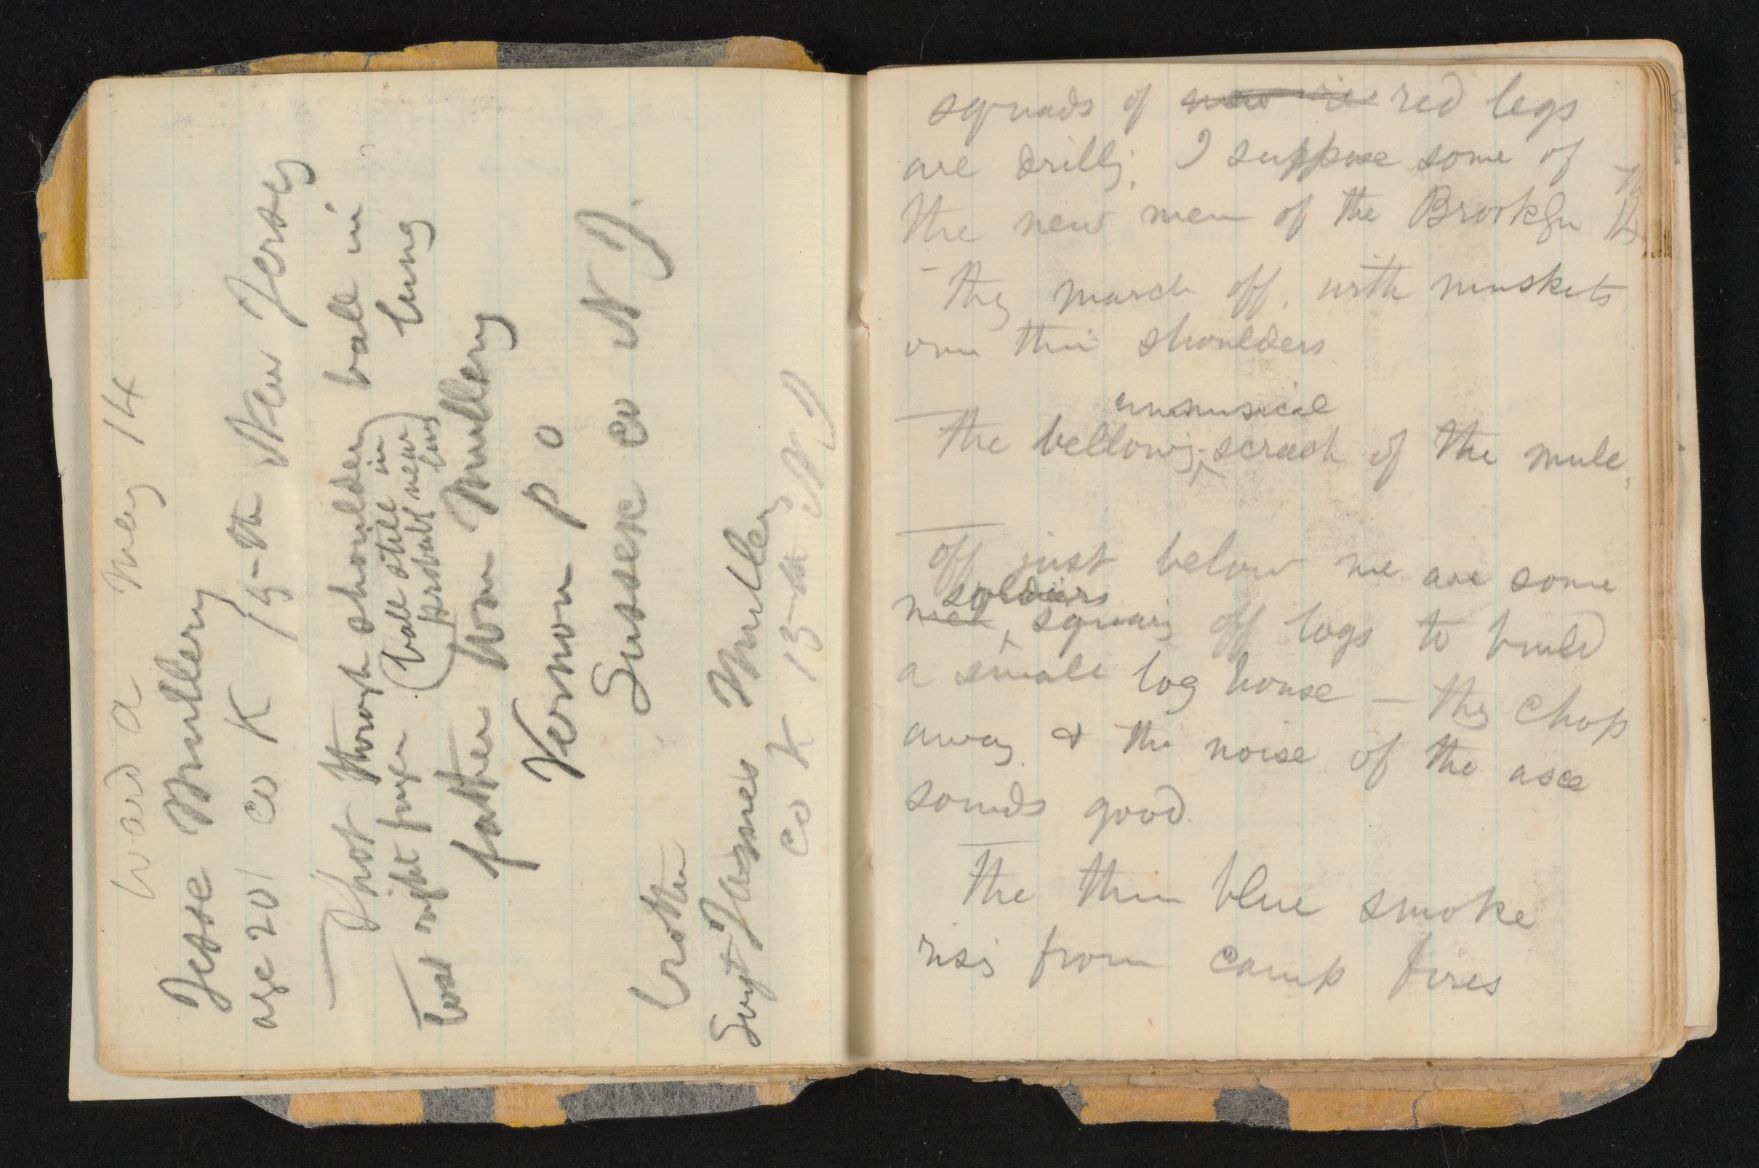 Ward A May 14
Jesse Mullery
age 20 co K 15th New Jersey
Shot through shoulder, ball in
(ball still in) lung
probably near lung
lost right finger
father Wm Mullery
Vernon p o
Sussex co N J.
brother
Sergt James Mullery
co K 15th N J
squads of new re red legs
are drillg, I suppose some of
the new men of the Brooklyn 14th
– they march off, with muskets
over their shoulders
unmusical
– The bellowing, screech of the mule,
– off just below me are some
soldiers
men squarg off logs to build
a small log house – they chop
away & the noise of the axe
sounds good.
– The thin blue smoke
risig from camp fires